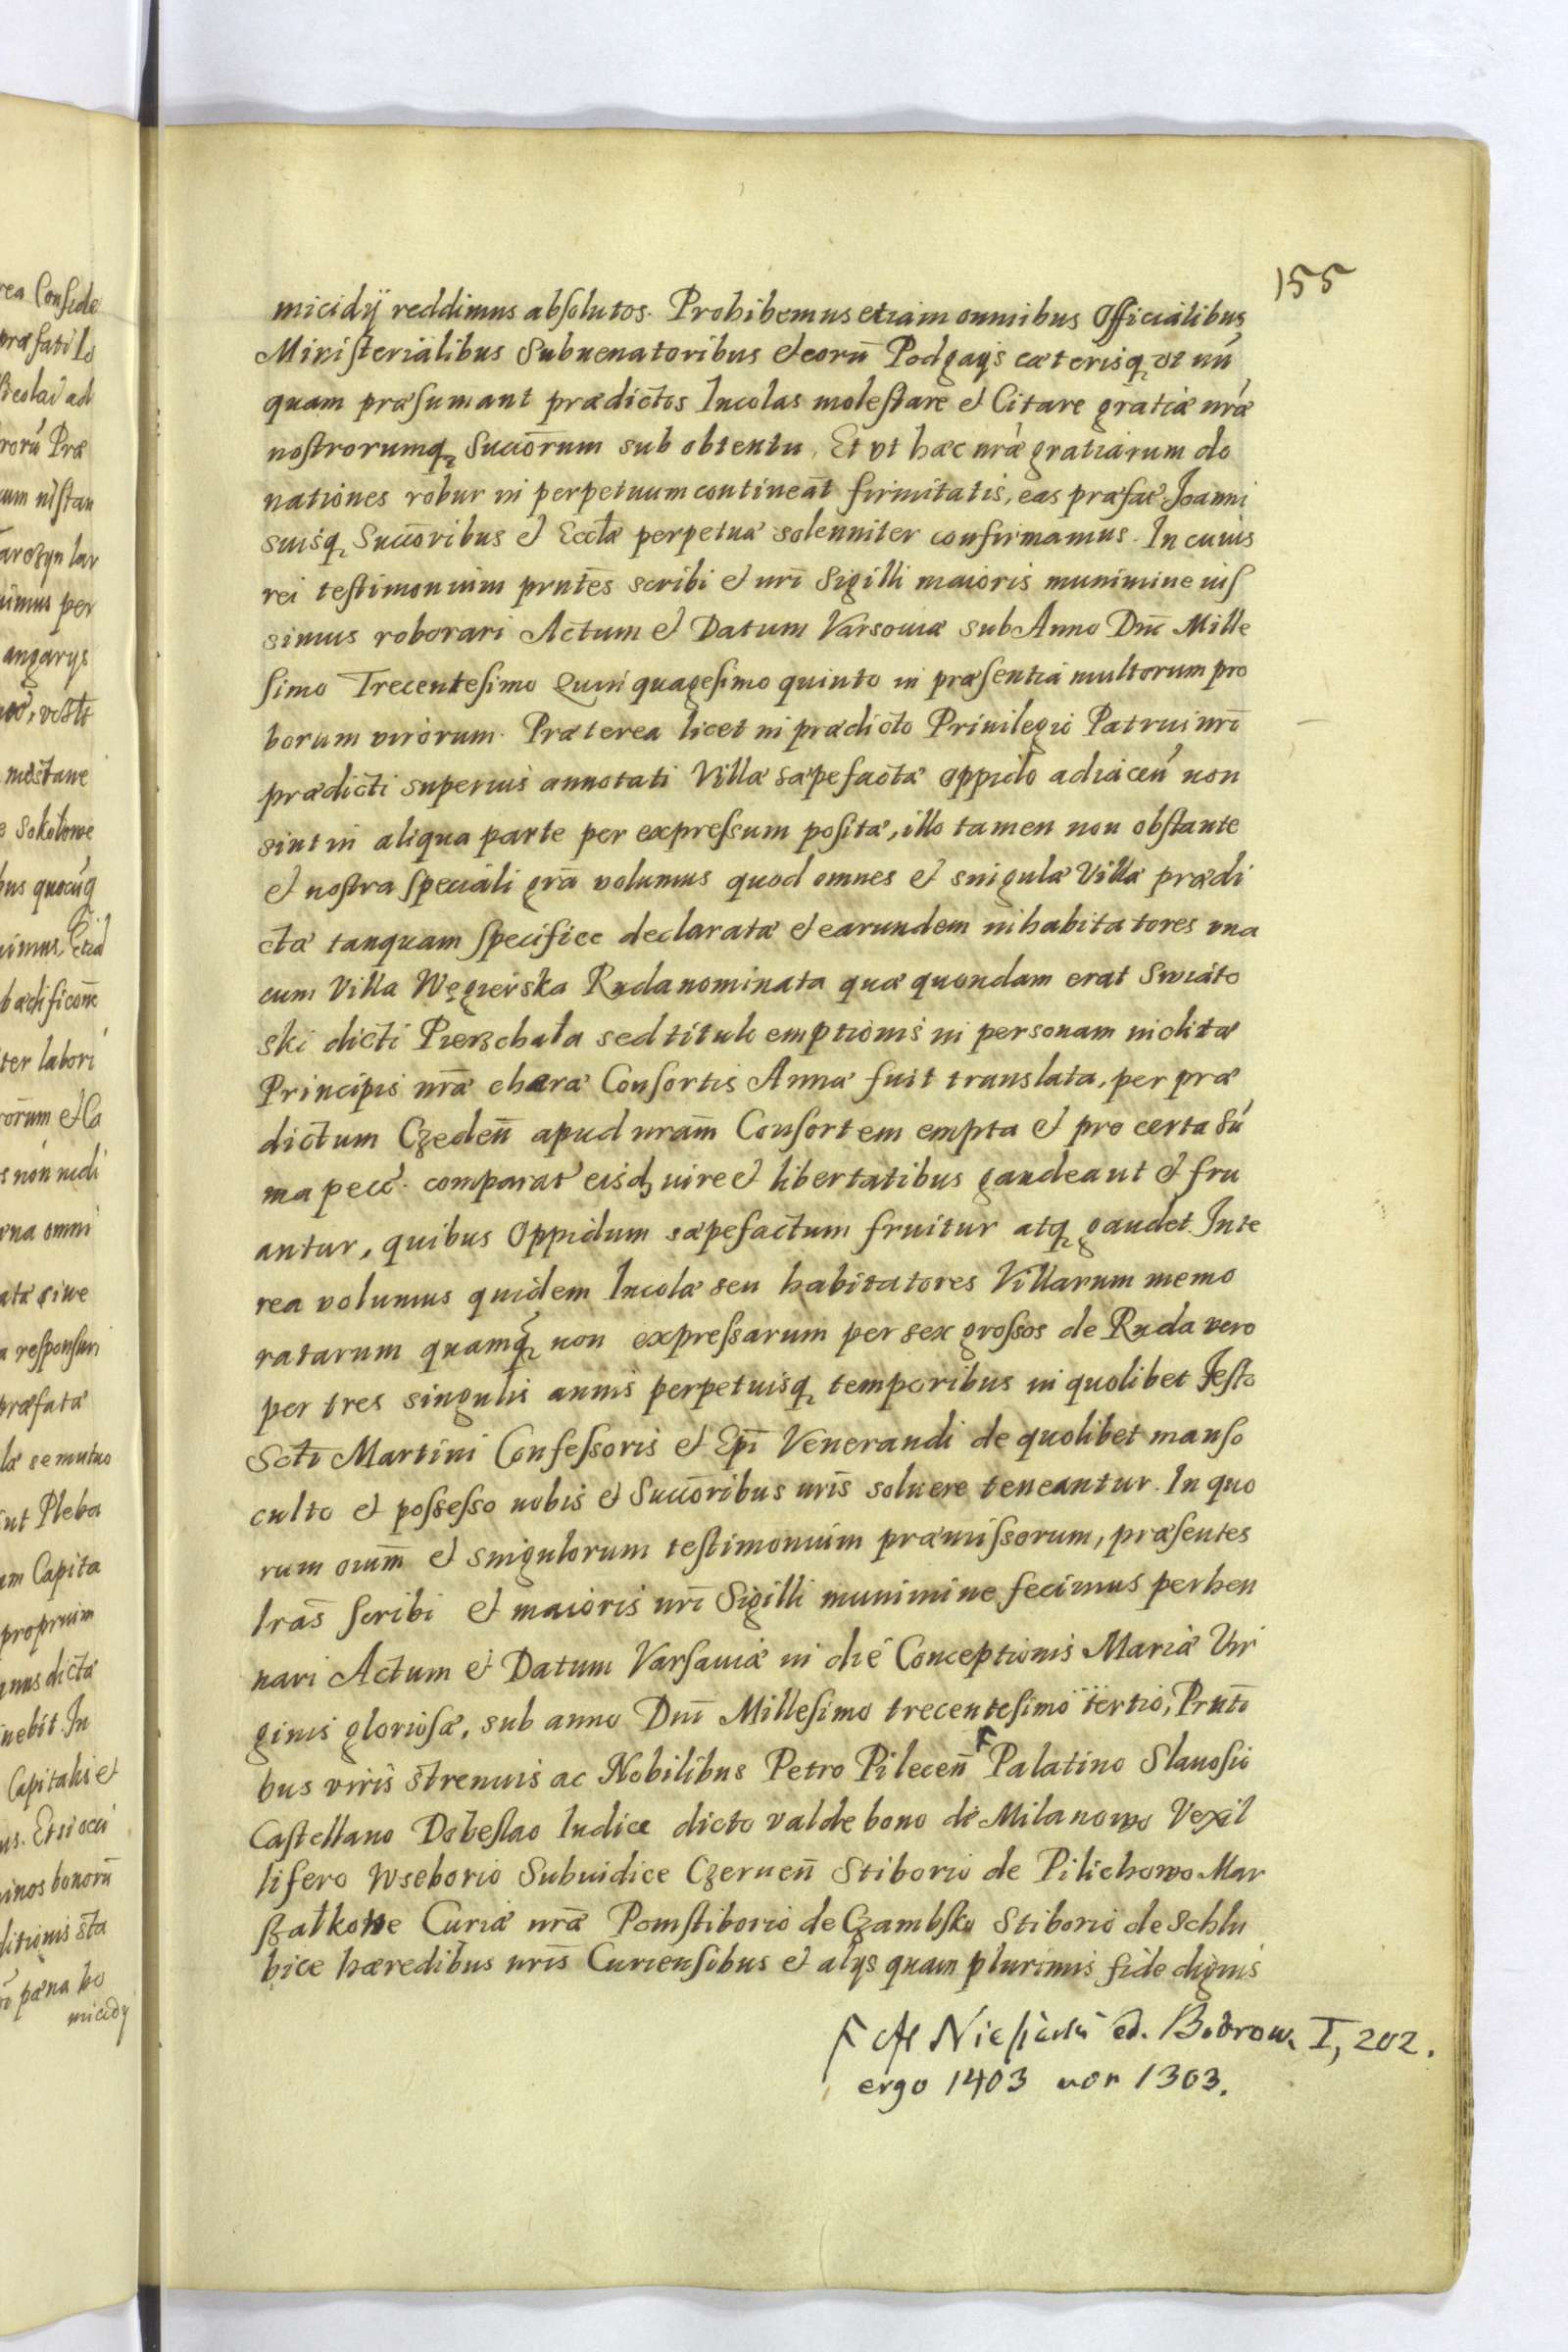 155
micidÿ reddimus absolutos. Prohibemus etiam omnibus Officialibus
Ministerialibus Subuenatoribus et eorũ Podgays cæterisq, vt nú
quam præsumant prædictos Incolas molestare et Citare gratiæ nrã
nostrorumq, Succōrum sub obtentu, Et vt hæc nrã gratiarum do
nationes robur in perpetuum contineāt firmitatis, eas præfac̄ Joanni
suisq, Succōribus et Eccłæ perpetuæ solenniter confirmamus. In cuius
rei testimonium prntēs scribi et nrī Sigilli maioris munimine iuf
simus roborari Actum et Datum Varsouiæ sub Anno Dnī Mille
simo Trecentesimo Quinquagesimo quinto in præsentia multorum pro
borum virorum. Præterea licet in prædicto Priuilegio Patrui nrī
prædicti superius annotati Villæ sæpefactæ oppido adiacen̄ non
sint in aliqua parte per expressum positæ, illo tamen non obstante
et nostra speciali grā volumus quod omnes et singulæ Villæ prædi
ctæ tanquam specifice declaratæ et earundem inhabitatores vna
cum Villa Węgierska Ruda nominata quæ quondam erat Swiąto
ski dicti Pierzchała sed titulo emptionis in personam inclitæ
Principis nrǣ charæ Consortis Annæ fuit translata, per præ
dictum Czeden̄ apud nram̄ Consortem empta et pro certa sú
ma pecc̄. comparat̄ eisd, iure et libertatibus gaudeant et fru
antur, quibus Oppidum sæpefactum fruitur atq, gaudet. Inte
rea volumus quidem Incolæ seu habitatores Villarum memo
ratarum quamq, non expressarum per sex grossos de Ruda vero
per tres singulis annis perpetuisq, temporibus in quolibet Festo
Sctī Martini Confessoris et Epī Venerandi de quolibet manso
culto et possesso nobis et Succōribus nrīs soluere teneantur. In quo
rum oium̄ et singulorum testimonium præmissorum, præsentes
lrās scribi et maioris nrī Sigilli munimine fecimus perhen
nari Actum et Datum Varsauiæ in die Conceptionis Mariæ Vir
ginis gloriosæ, sub anno Dnī Millesimo trecentesimo tertio, Prntī
bus viris strenuis ac Nobilibus Petro Pilecen̄ Palatino Slauosio
Castellano Dobeslao Iudice dicto valde bono de Milanowo Vexil
lifero Wseborio Subiudice Czernen̄ Stiborio de Pilichowo Mar
szałkone Curiæ nrǣ Pomstiborio de Czambsko Stiborio de Schlu
bice hæredibus nrīs Curiensibus et alÿs quam plurimis fide dignis
cf Niesiecki ed. Bobrow. I, 202.
ergo 1403 non 1303.